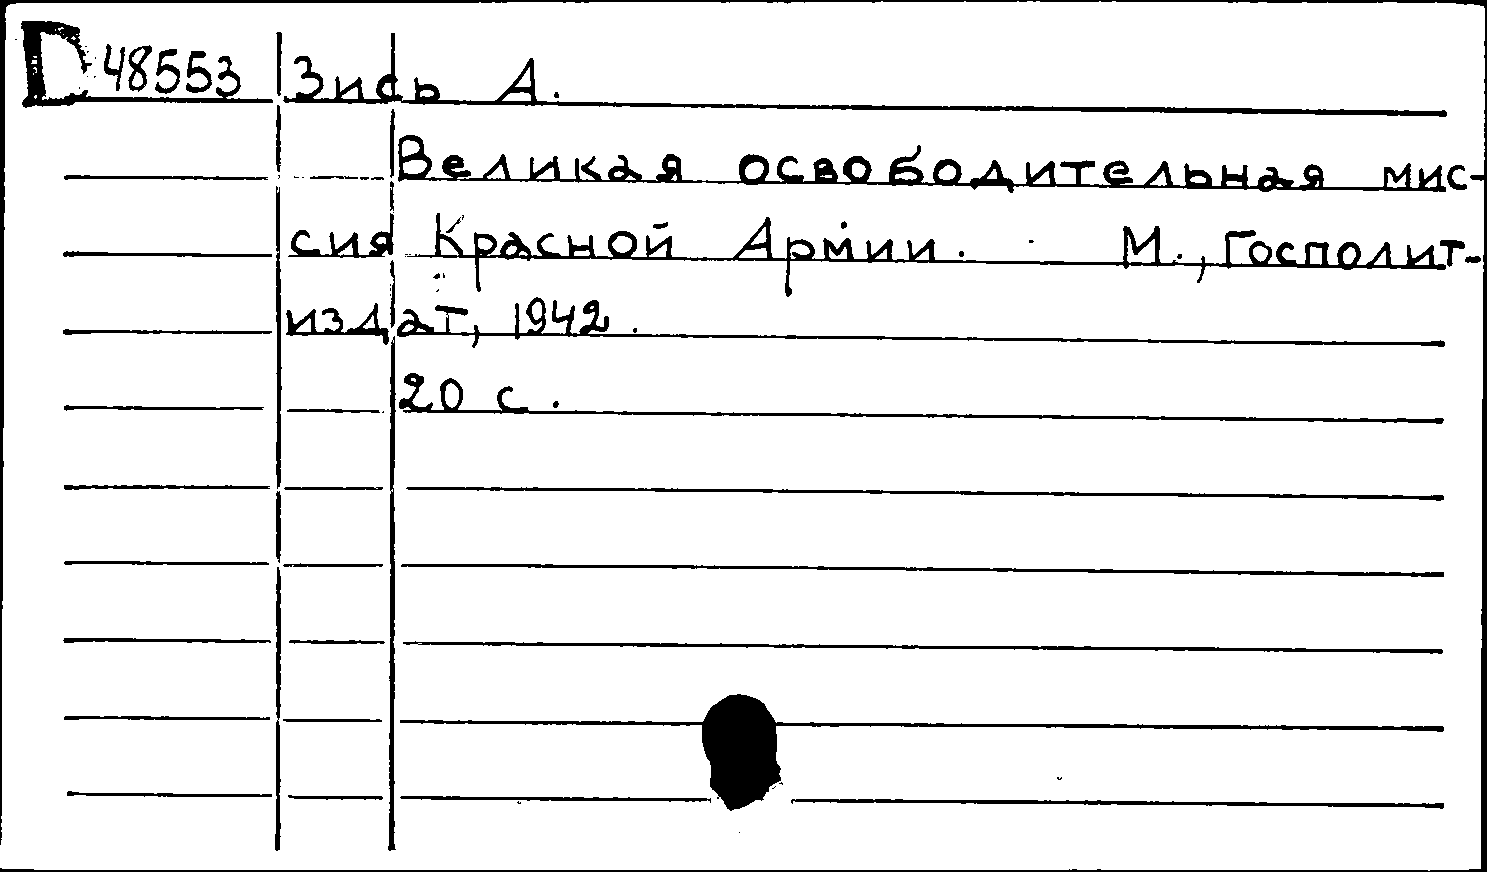 D 48553 Зись А.
Великая освободительная мис-
сия Красной Армии. М., Госполит-
издат, 1942.
20 с.